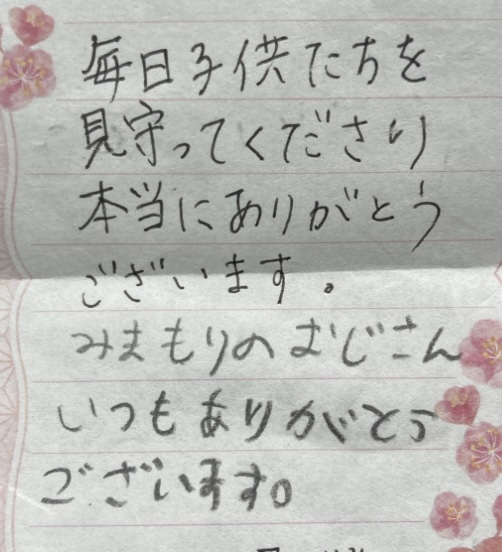 毎日子供たちを
見守ってくださり
本当にありがとう
ございます。
みまもりのおじさん
いつもありがとう
ございます。